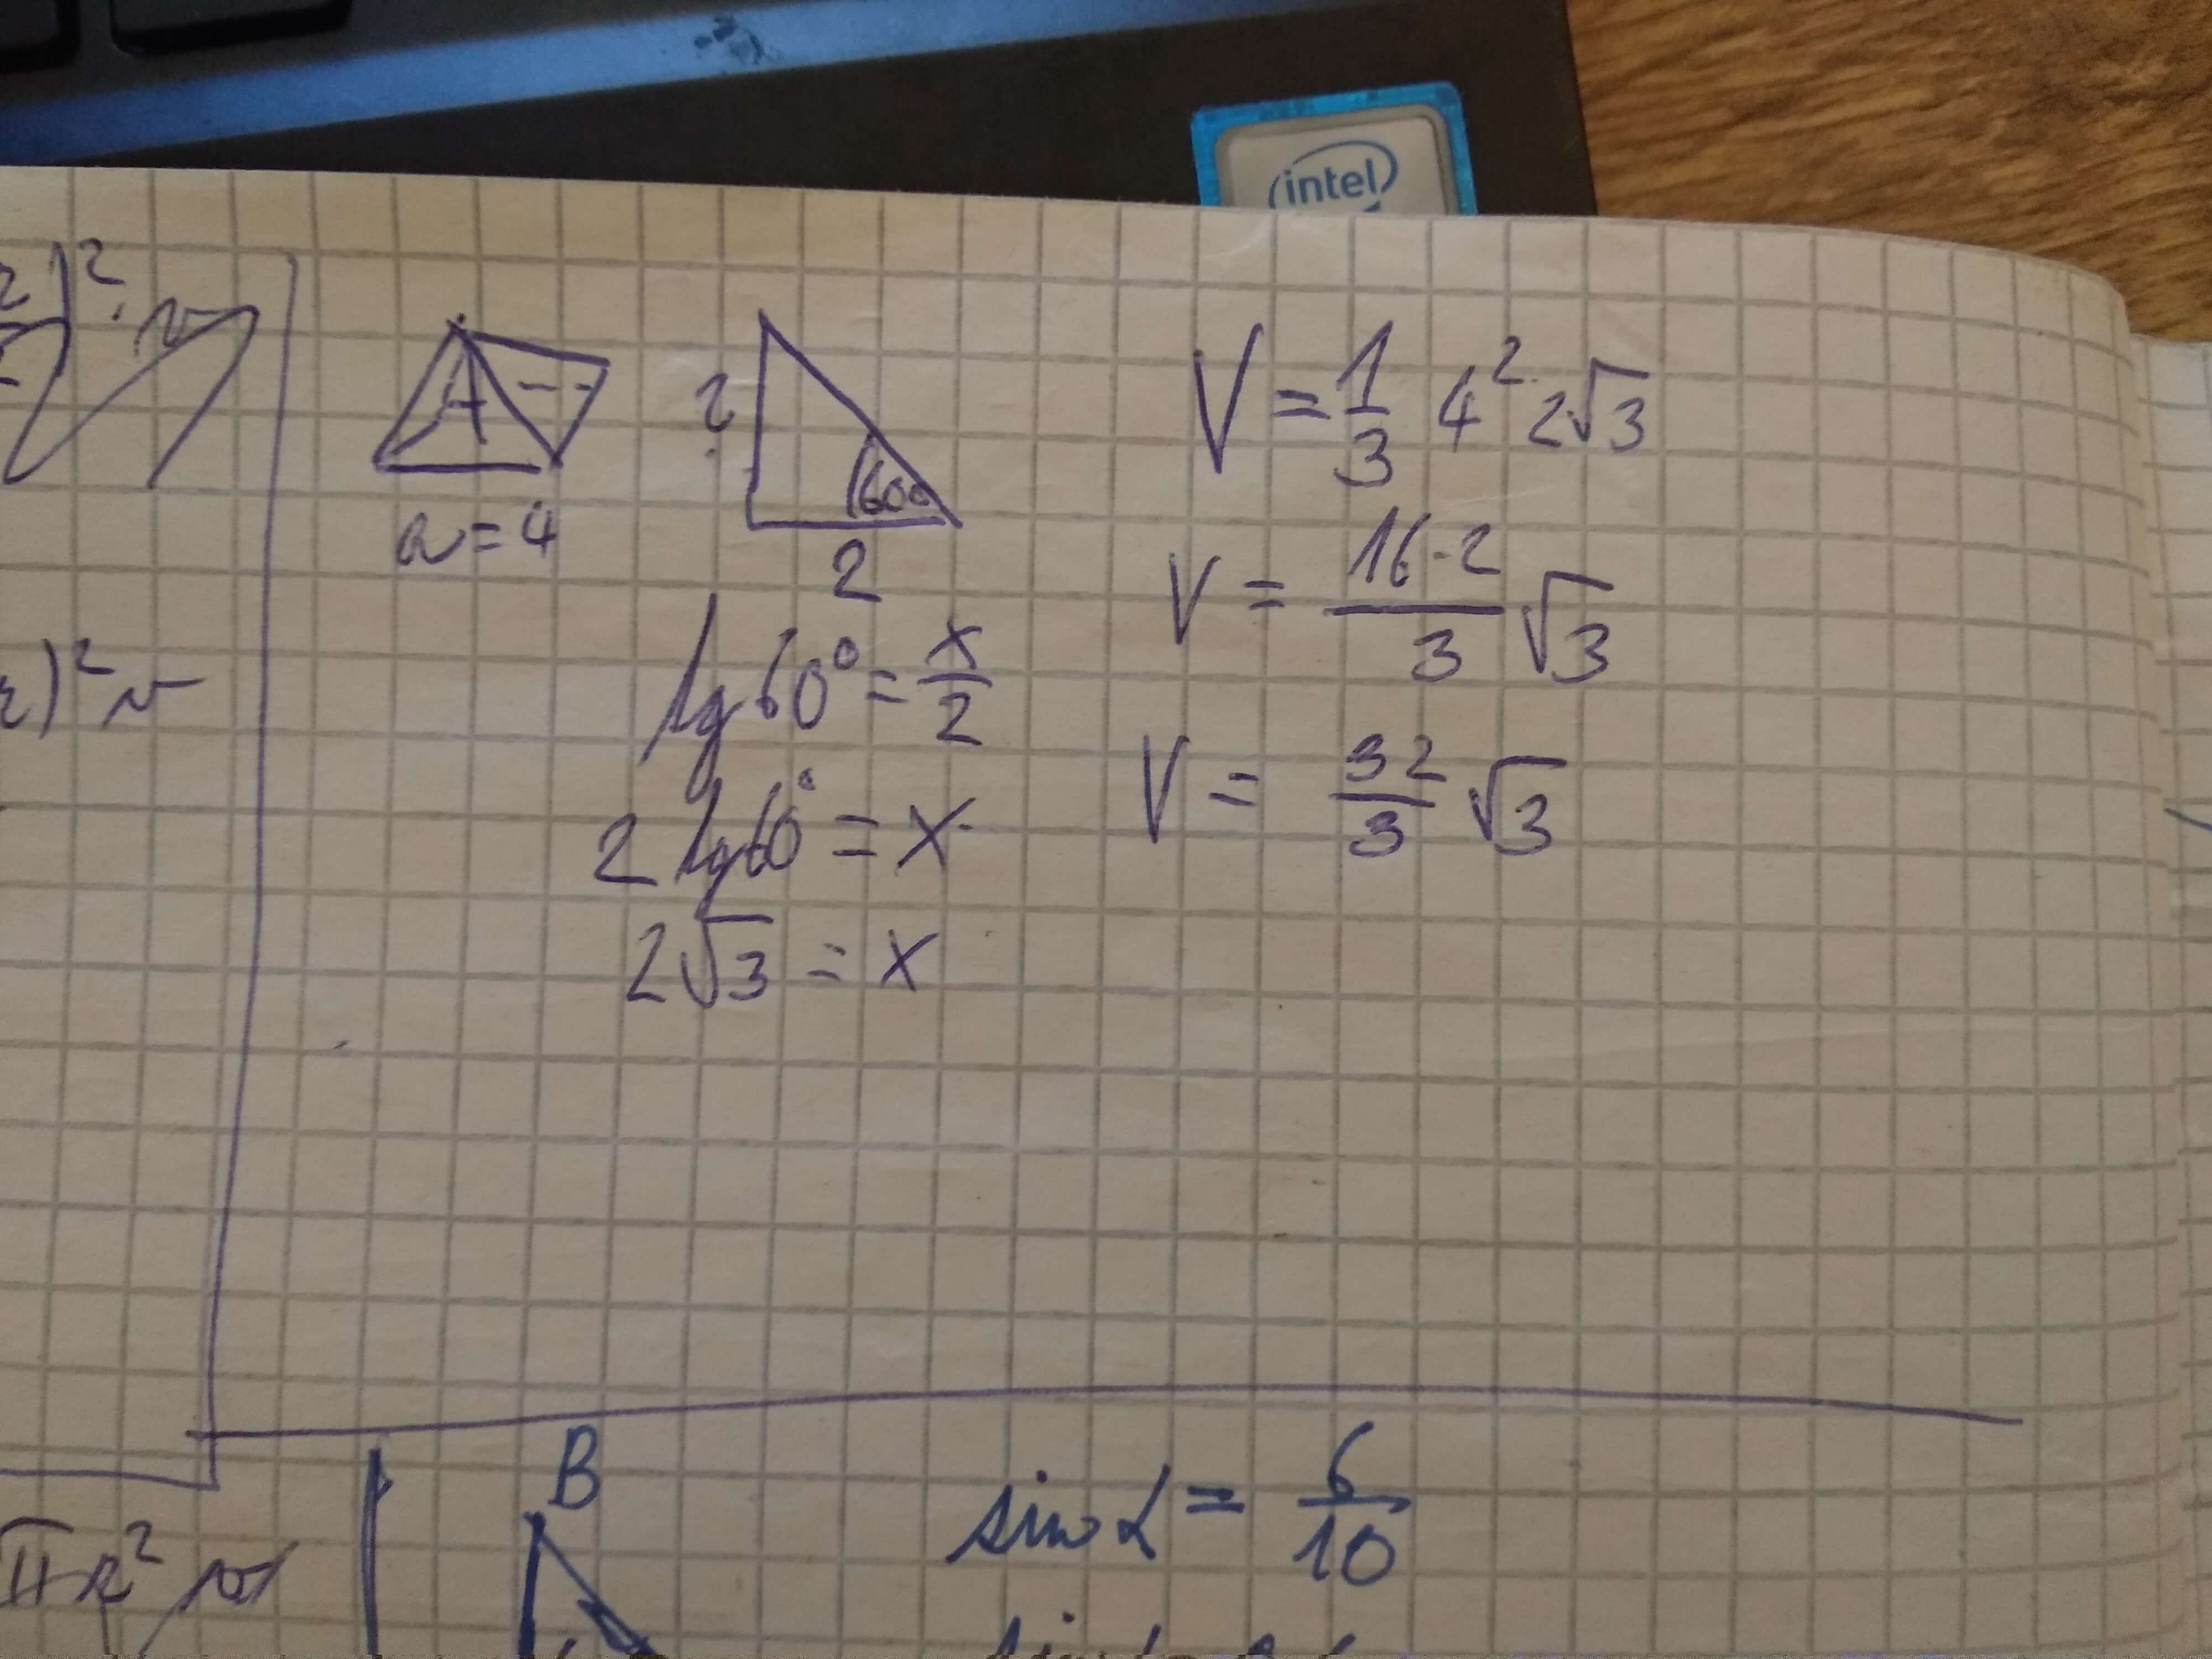 intel
)² · v
a = 4
?
60°
2
tg 60° = x/2
2 tg 60° = x
2√3 = x
V = 1/3 4² · 2√3
V = 16·2/3 √3
V = 32/3 √3
)² v
B
sin α = 6/10
πr² v